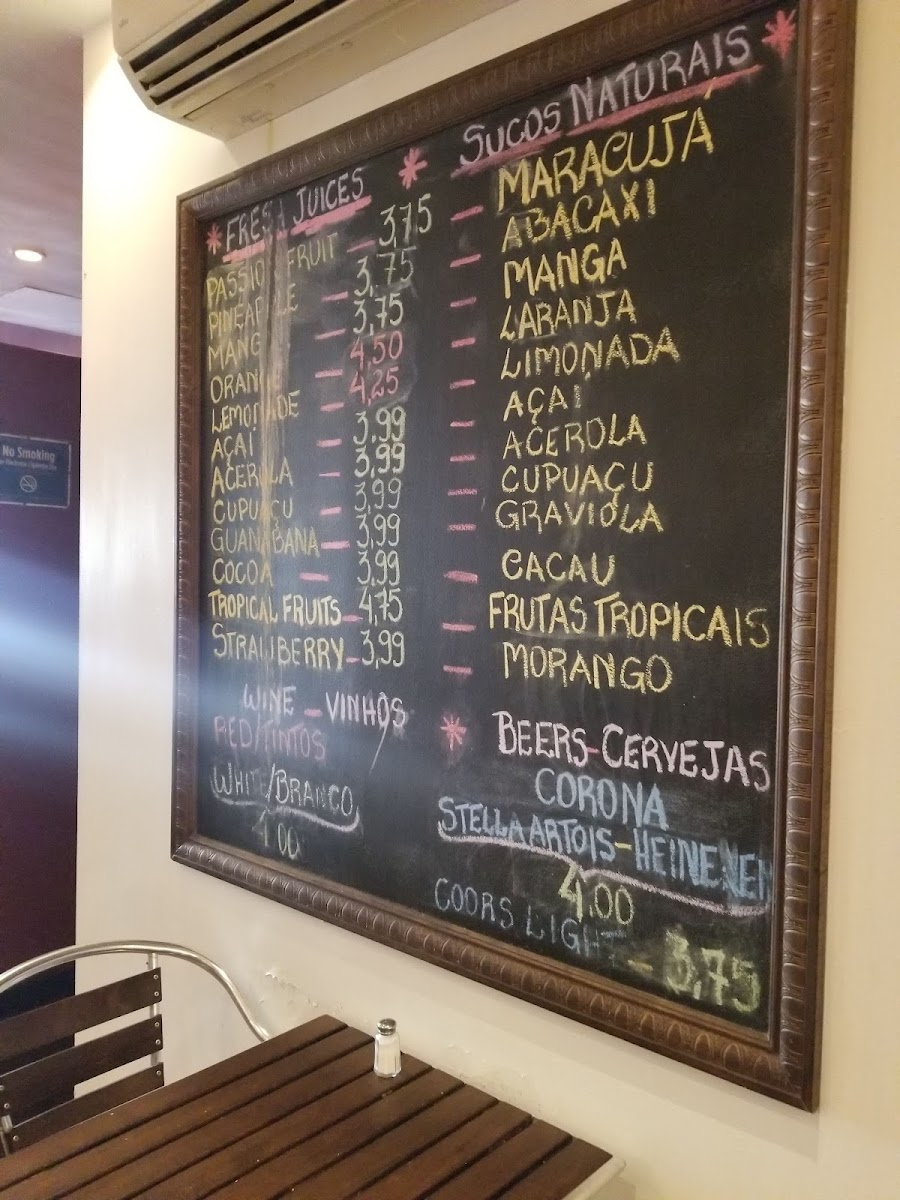 * FRESH JUICES *
PASSION FRUIT - 3,75
PINEAPPLE - 3,75
MANGO - 3,75
ORANGE - 4,50
LEMONADE - 4,25
AÇAÍ - 3,99
ACEROLA - 3,99
CUPUAÇU - 3,99
GUANABANA - 3,99
COCOA - 3,99
TROPICAL FRUITS - 4,75
STRAWBERRY - 3,99
WINE - VINHOS
RED/TINTOS
WHITE/BRANCO
SUCOS NATURAIS *
- MARACUJÁ
- ABACAXI
- MANGA
- LARANJA
- LIMONADA
- AÇAI
- ACEROLA
- CUPUAÇU
- GRAVIOLA
- CACAU
- FRUTAS TROPICAIS
- MORANGO
* BEERS-CERVEJAS
CORONA
STELLA ARTOIS - HEINENEN
4.00
COORS LIGHT - 3,75
No Smoking